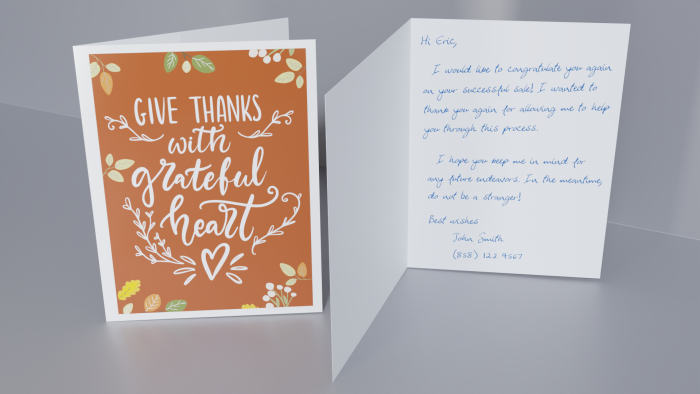 GIVE THANKS
with
grateful
heart
Hi Eric,
I would like to congratulate you again
on your successful sale! I wanted to
thank you again for allowing me to help
you through this process.
I hope you keep me in mind for
any future endeavors. In the meantime,
do not be a stranger!
Best wishes
John Smith
(858) 122 4567